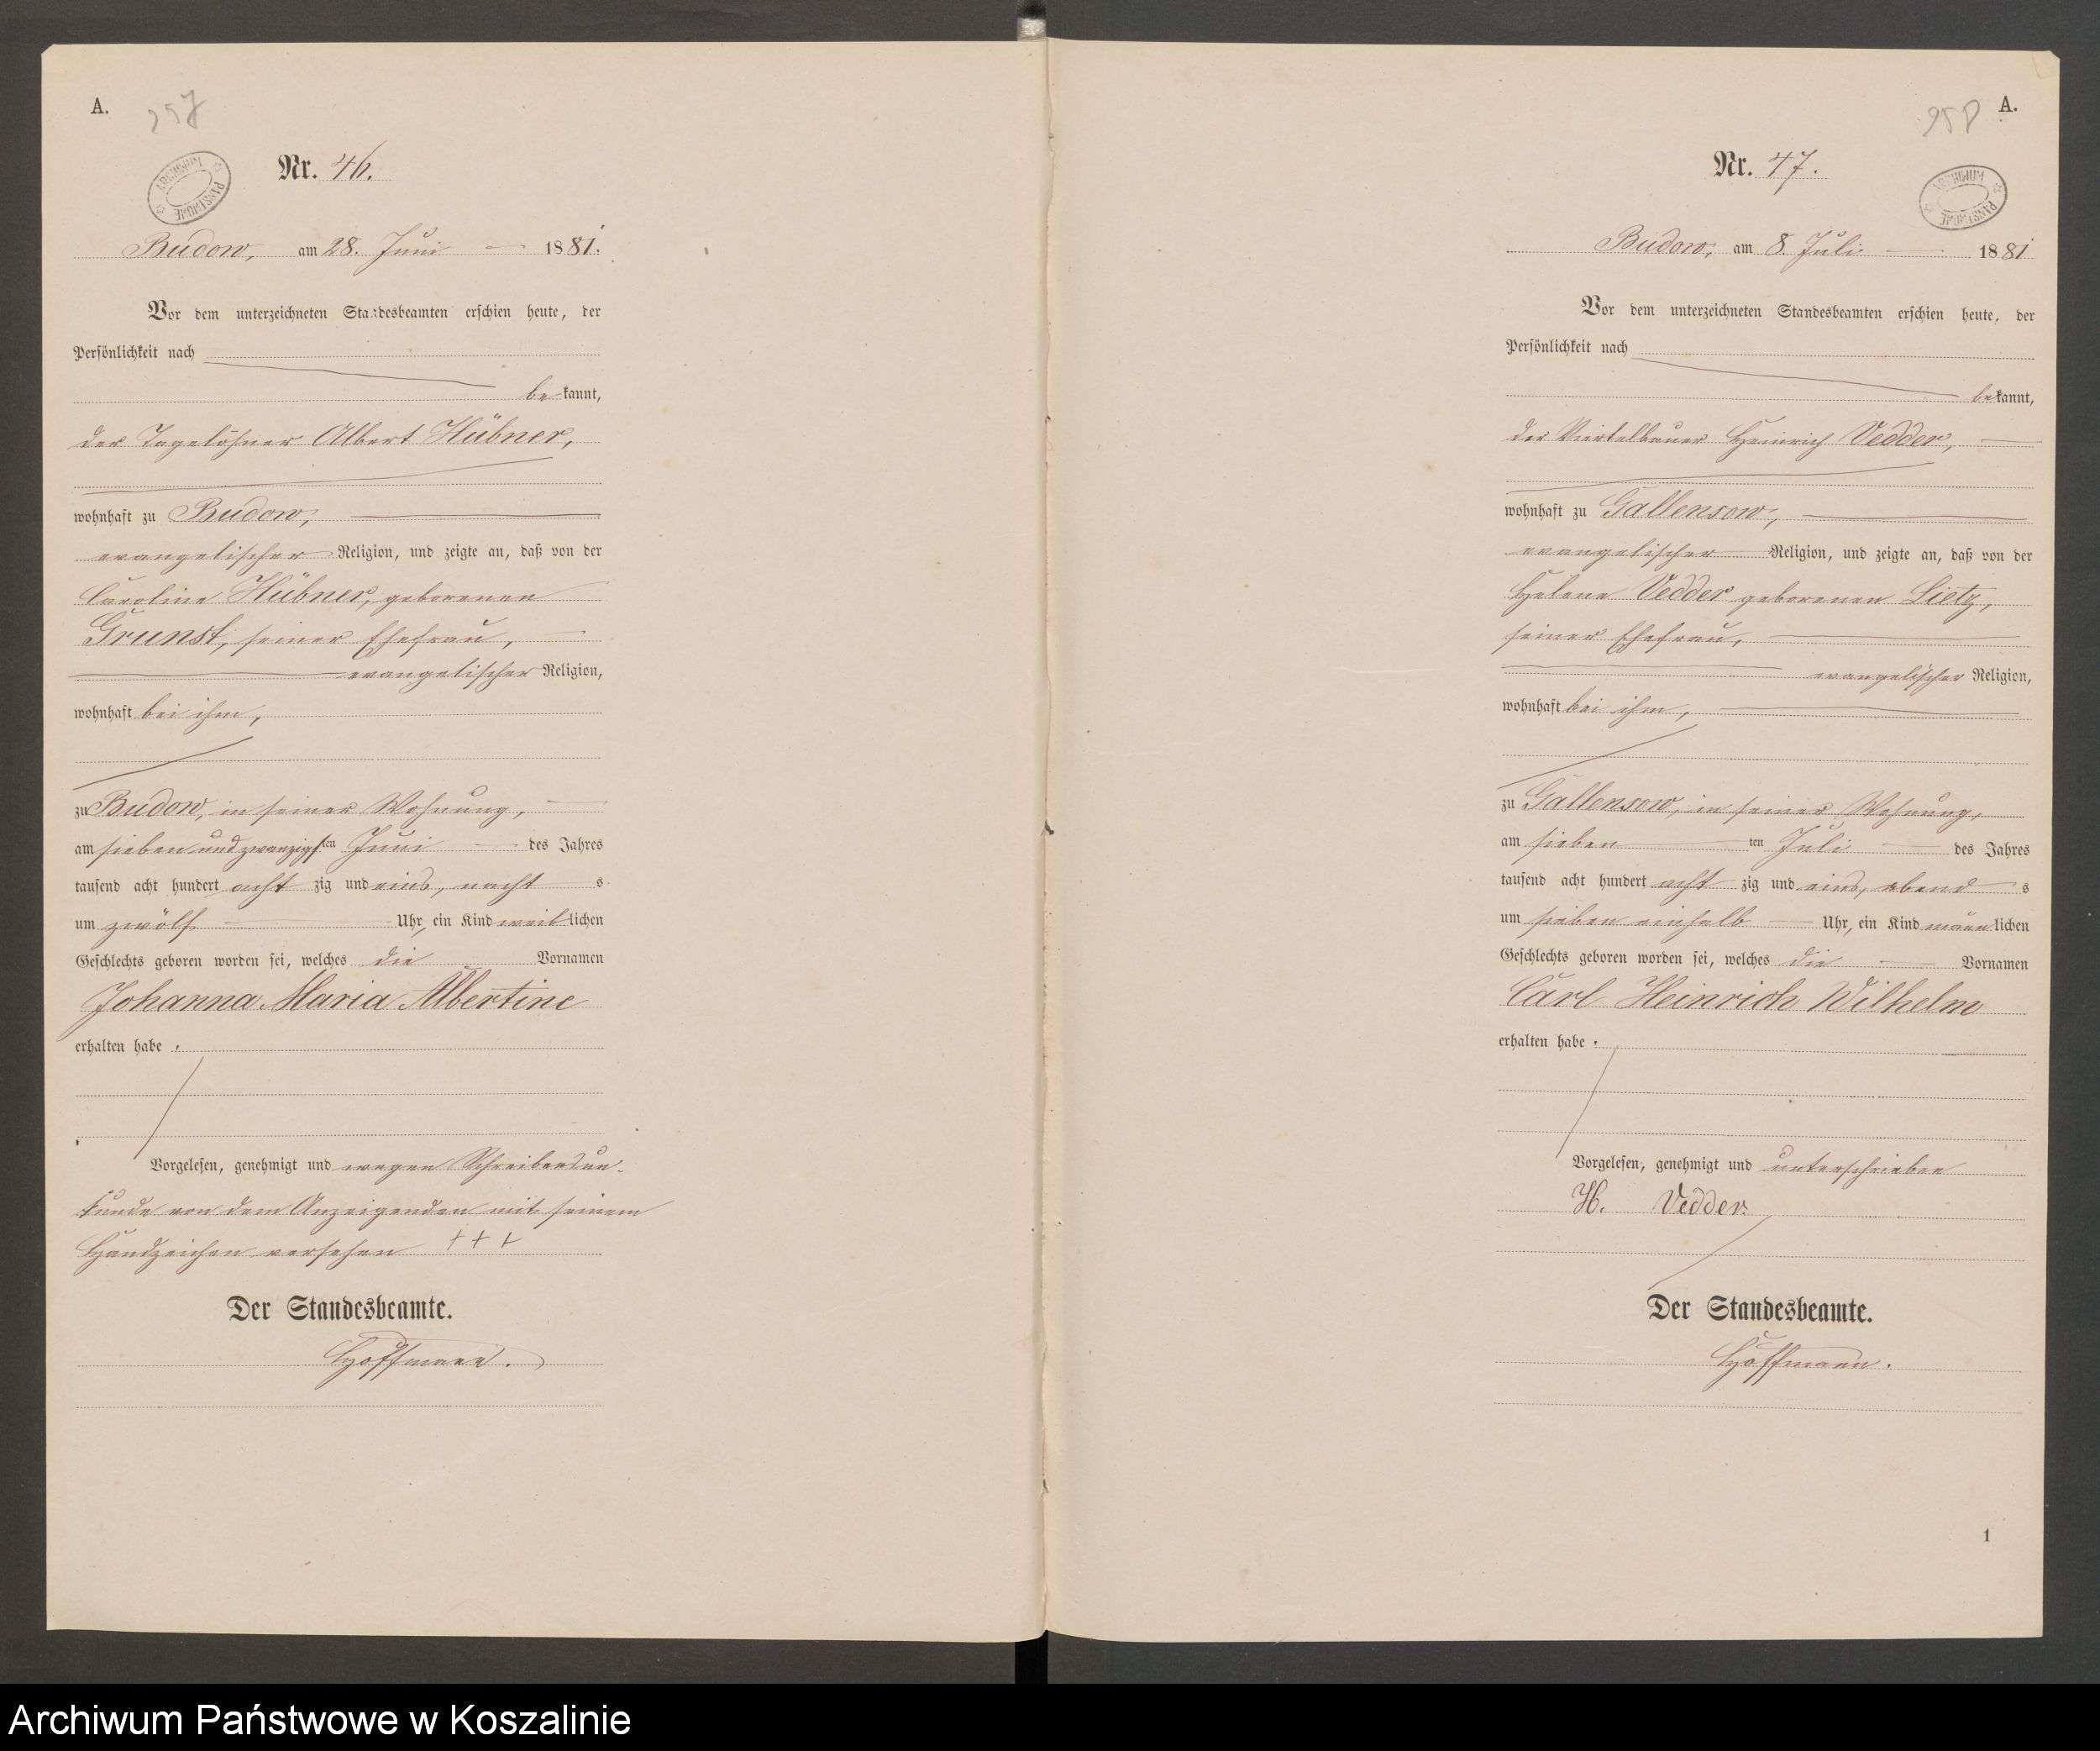 A.
257
Nr. 46.
ARCHIWUM PAŃSTWOWE
Budow, am 28. Juni 1881.
Vor dem unterzeichneten Standesbeamten erschien heute, der
Persönlichkeit nach
bekannt,
der Tagelöhner Albert Hübner,
wohnhaft zu Budow,
evangelischer Religion, und zeigte an, daß von der
Caroline Hübner, geborenen
Grunst, seiner Ehefrau,
evangelischer Religion,
wohnhaft bei ihm,
zu Budow, in seiner Wohnung,
am sieben und zwanzigsten Juni des Jahres
tausend acht hundert achtzig und eins, nachts
um zwölf Uhr, ein Kind weiblichen
Geschlechts geboren worden sei, welches die Vornamen
Johanna Maria Albertine
erhalten habe.
Vorgelesen, genehmigt und wegen Schreibensun-
kunde von dem Anzeigenden mit seinem
Handzeichen versehen +++
Der Standesbeamte.
Hoffmann.
A.
258
Nr. 47.
ARCHIWUM PAŃSTWOWE
Budow, am 8. Juli 1881
Vor dem unterzeichneten Standesbeamten erschien heute, der
Persönlichkeit nach
bekannt,
der Viertelbauer Heinrich Vedder,
wohnhaft zu Gallensow,
evangelischer Religion, und zeigte an, daß von der
Helene Vedder geborenen Lietz,
seiner Ehefrau,
evangelischer Religion,
wohnhaft bei ihm,
zu Gallensow, in seiner Wohnung,
am siebenten Juli des Jahres
tausend acht hundert achtzig und eins, abends
um sieben einhalb Uhr, ein Kind männlichen
Geschlechts geboren worden sei, welches die Vornamen
Carl Heinrich Wilhelm
erhalten habe.
Vorgelesen, genehmigt und unterschrieben
H. Vedder
Der Standesbeamte.
Hoffmann.
1
Archiwum Państwowe w Koszalinie